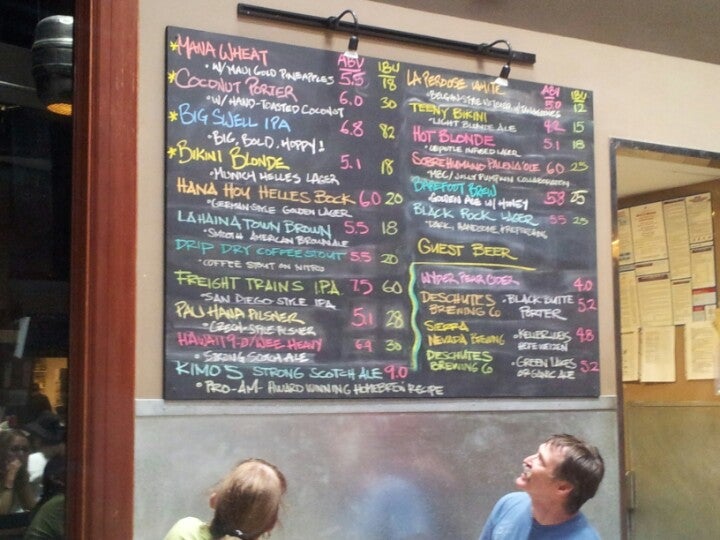 ABV IBU
*MANA WHEAT 5.5 18
• W/ MAUI GOLD PINEAPPLES
*COCONUT PORTER 6.0 30
• W/ HAND-TOASTED COCONUT
*BIG SWELL IPA 6.8 82
• BIG, BOLD, HOPPY!
*BIKINI BLONDE 5.1 18
• MUNICH HELLES LAGER
HANA HOU HELLES BOCK 6.0 20
• GERMAN STYLE GOLDEN LAGER
LAHAINA TOWN BROWN 5.5 18
• SMOOTH AMERICAN BROWN ALE
DRIP DRY COFFEE STOUT 5.5 20
• COFFEE STOUT ON NITRO
FREIGHT TRAINS IPA 7.5 60
• SAN DIEGO STYLE IPA
PAU HANA PILSNER 5.1 28
• CZECH-STYLE PILSNER
HAWAII 9-0/WEE HEAVY 30
• STRONG SCOTCH ALE
KIMO'S STRONG SCOTCH ALE 9.0
• PRO-AM- AWARD WINNING HOMEBREW RECIPE
ABV IBU
LA PEROUSE WHITE 5.0 12
• BELGIAN STYLE
TEENY BIKINI 15
• LIGHT BLONDE ALE
HOT BLONDE 5.1 18
• CHIPOTLE INFUSED LAGER
SOBREHUMANO PALENA'OLE 6.0 25
• MBC/JOLLY PUMPKIN COLLABORATION
BAREFOOT BREW 5.3 25
GOLDEN ALE W/ HONEY
BLACK ROCK LAGER 5.5 25
• DARK, HANDSOME & REFRESHING
GUEST BEER
WYDER PEAR CIDER 4.0
DESCHUTES BREWING CO • BLACK BUTTE PORTER 5.2
SIERRA NEVADA BREWING • KELLERWEIS HEFEWEIZEN 4.8
DESCHUTES BREWING CO • GREEN LAKES ORGANIC ALE 5.2